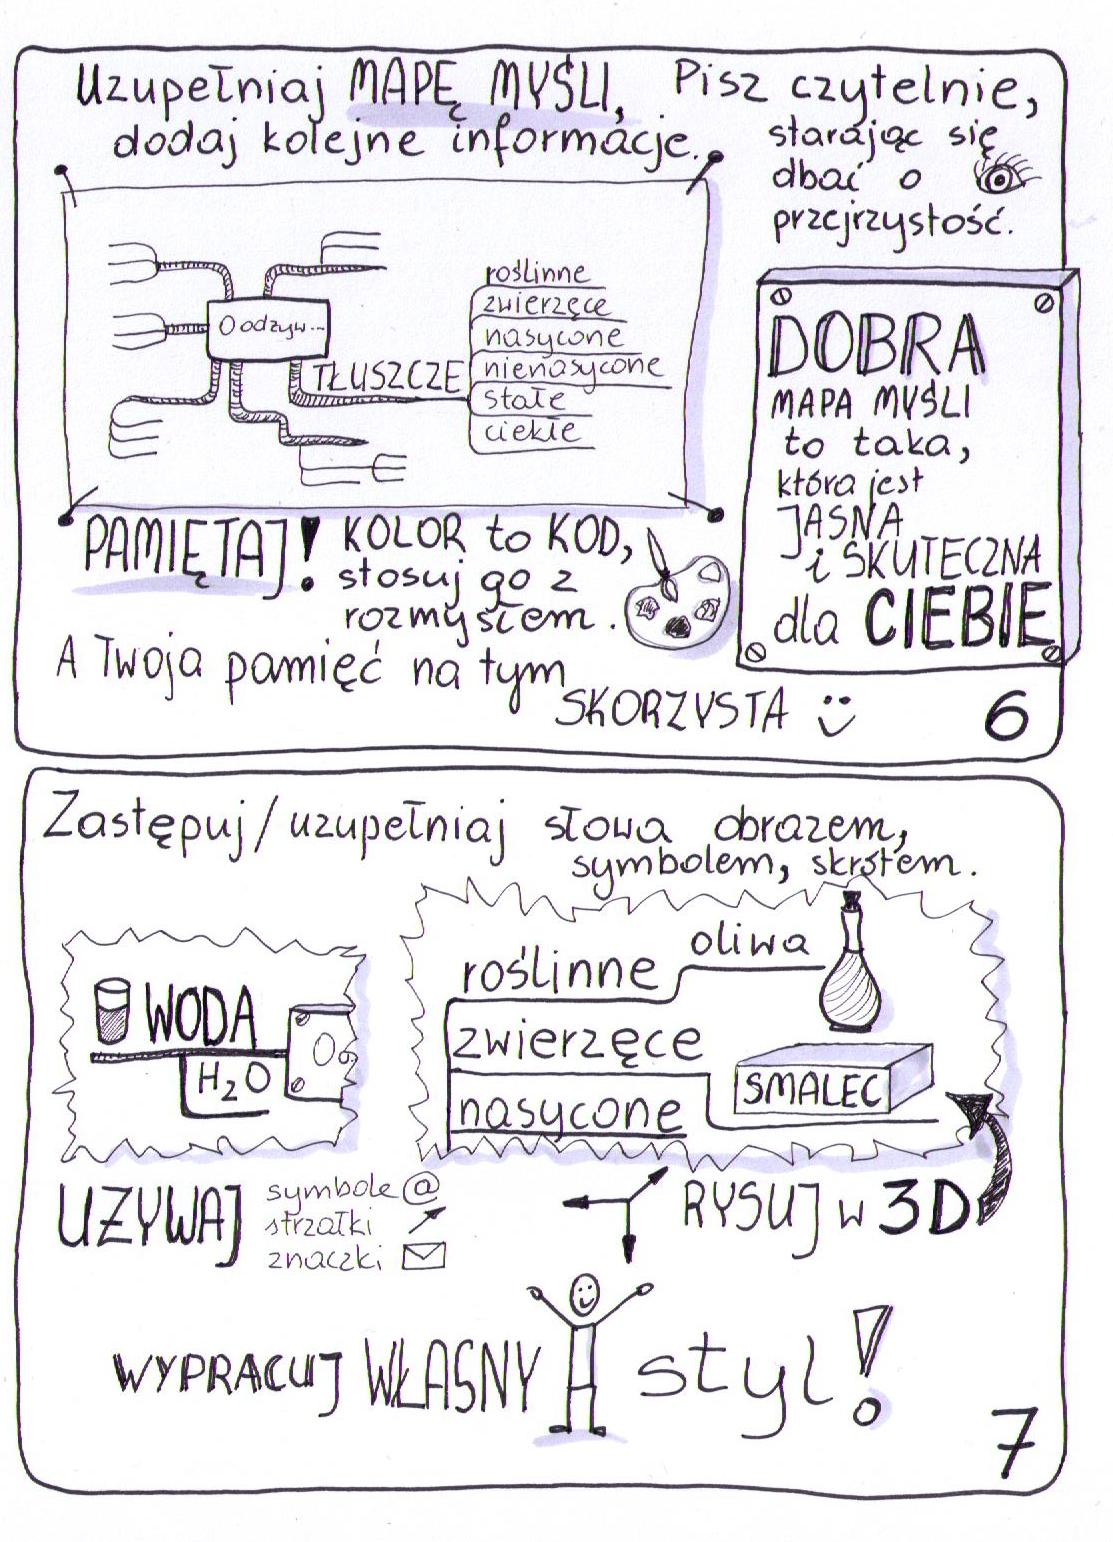 Uzupełniaj MAPĘ MYŚLI,
dodaj kolejne informacje.
Pisz czytelnie,
starając się
dbać o
przejrzystość.
O odżyw...
TŁUSZCZE
roślinne
zwierzęce
nasycone
nienasycone
stałe
ciekłe
DOBRA
MAPA MYŚLI
to taka,
która jest
JASNA
i SKUTECZNA
dla CIEBIE
PAMIĘTAJ!
KOLOR to KOD,
stosuj go z
rozmysłem.
A Twoja pamięć na tym
SKORZYSTA
6
Zastępuj/uzupełniaj słowa obrazem,
symbolem, skrótem.
WODA
H2O
roślinne
oliwa
zwierzęce
SMALEC
nasycone
UŻYWAJ
symbole @
strzałki
znaczki
RYSUJ w 3D
WYPRACUJ WŁASNY styl!
7